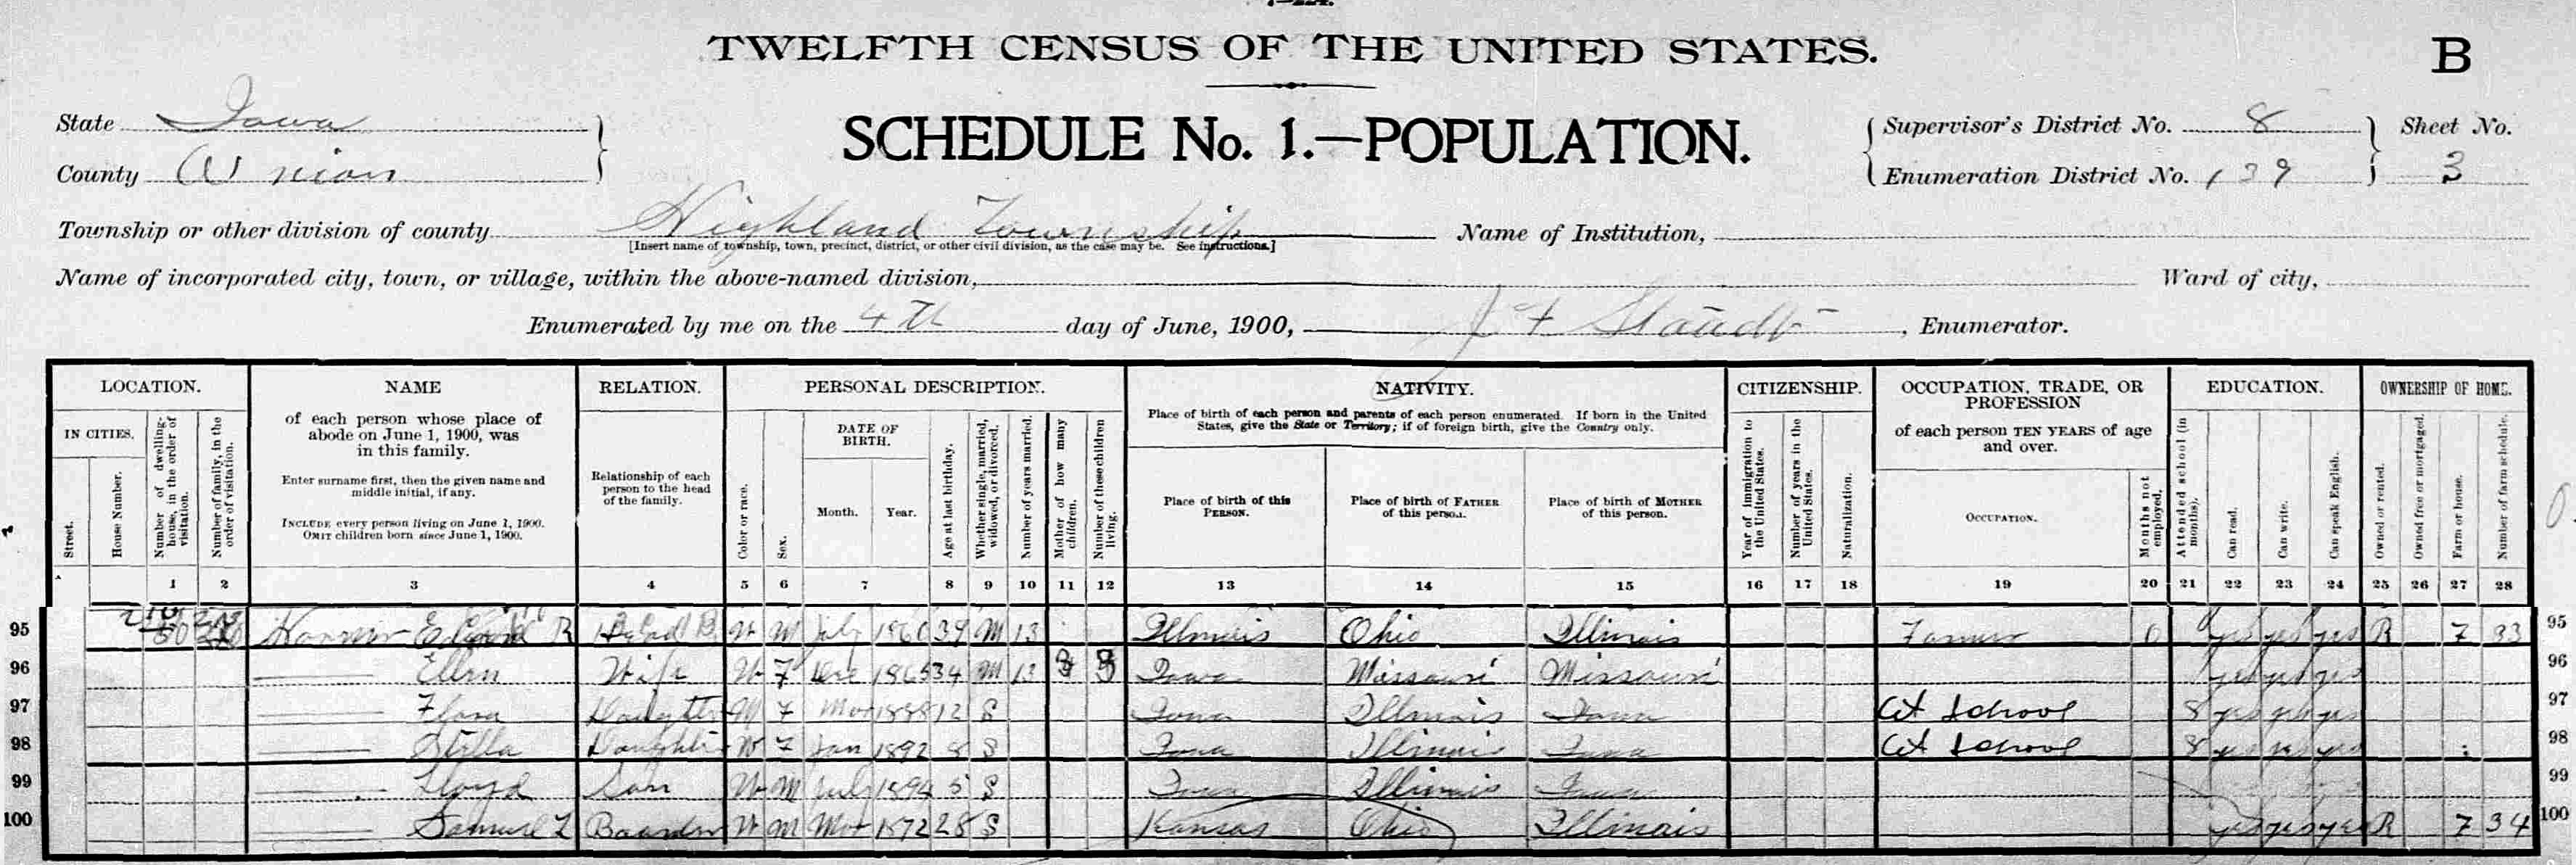 TWELFTH CENSUS OF THE UNITED STATES.
B
State Iowa
County Union
SCHEDULE No. 1.—POPULATION.
Supervisor's District No. 8
Enumeration District No. 139
Sheet No.
3
Township or other division of county Highland Township
[Insert name of township, town, precinct, district, or other civil division, as the case may be. See instructions.]
Name of Institution,
Name of incorporated city, town, or village, within the above-named division,
Ward of city,
Enumerated by me on the 4th day of June, 1900, J F , Enumerator.
LOCATION.
IN CITIES.
Street.
House Number.
Number of dwelling-house, in the order of visitation.
Number of family, in the order of visitation.
NAME
of each person whose place of
abode on June 1, 1900, was
in this family.
Enter surname first, then the given name and
middle initial, if any.
INCLUDE every person living on June 1, 1900.
OMIT children born since June 1, 1900.
RELATION.
Relationship of each
person to the head
of the family.
PERSONAL DESCRIPTION.
Color or race.
Sex.
DATE OF
BIRTH.
Month.
Year.
Age at last birthday.
Whether single, married, widowed, or divorced.
Number of years married.
Mother of how many children.
Number of these children living.
NATIVITY.
Place of birth of each person and parents of each person enumerated. If born in the United
States, give the State or Territory; if of foreign birth, give the Country only.
Place of birth of this
PERSON.
Place of birth of FATHER
of this person.
Place of birth of MOTHER
of this person.
CITIZENSHIP.
Year of immigration to the United States.
Number of years in the United States.
Naturalization.
OCCUPATION, TRADE, OR
PROFESSION
of each person TEN YEARS of age
and over.
OCCUPATION.
Months not employed.
EDUCATION.
Attended school (in months).
Can read.
Can write.
Can speak English.
OWNERSHIP OF HOME.
Owned or rented.
Owned free or mortgaged.
Farm or house.
Number of farm schedule.
1 2 3 4 5 6 7 8 9 10 11 12 13 14 15 16 17 18 19 20 21 22 23 24 25 26 27 28
95 R Head W M July 1860 39 M 13 Illinois Ohio Illinois Farmer 0 yes yes yes R F 33 95
96 Ellen Wife W F Dec 1865 34 M 13 Iowa Missouri Missouri yes yes yes 96
97 Flora Daughter W F Mar 1888 12 S Iowa Illinois Iowa At School 8 yes yes yes 97
98 Stella Daughter W F Jan 1892 8 S Iowa Illinois Iowa At School 8 yes yes yes 98
99 Lloyd Son W M July 1894 5 S Iowa Illinois Iowa 99
100 Samuel L Boarder W M Mar 1872 28 S Kansas Ohio Illinois yes yes yes R F 34 100